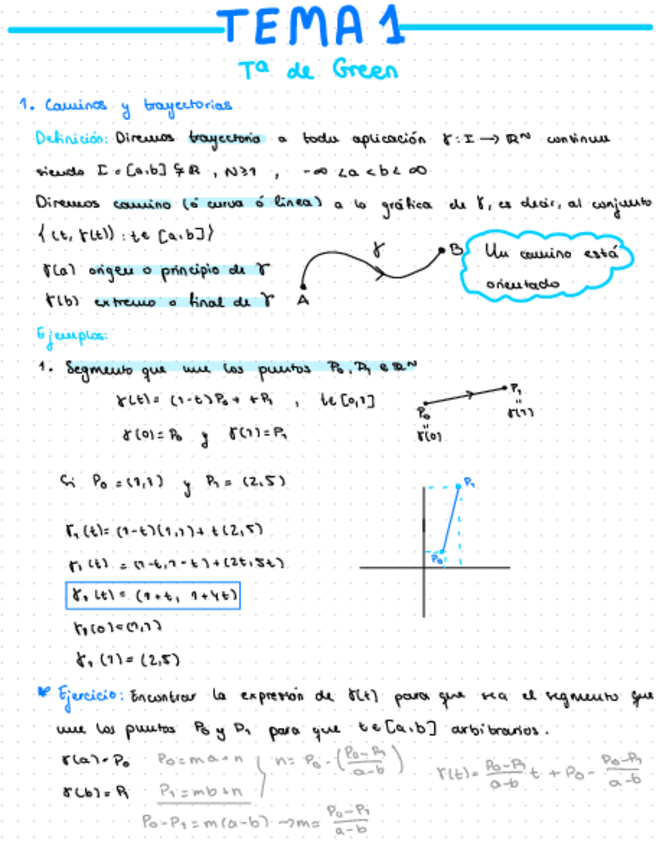 TEMA 1
Tª de Green
1. Caminos y trayectorias
Definición: Diremos trayectoria a toda aplicación γ: I → ℝᴺ continua
siendo I = [a,b] ⊊ ℝ, N≥1, -∞ < a < b < ∞
Diremos camino (ó curva ó línea) a la gráfica de γ, es decir, al conjunto
{(t, γ(t)) : t ∈ [a,b]}
γ(a) origen o principio de γ
γ(b) extremo o final de γ
A
γ
B
Un camino está
orientado
Ejemplos:
1. Segmento que une los puntos P₀, P₁ ∈ ℝᴺ
γ(t) = (1-t)P₀ + tP₁ , t ∈ [0,1]
γ(0) = P₀ y γ(1) = P₁
P₀
"
γ(0)
P₁
"
γ(1)
Si P₀ = (1,1) y P₁ = (2,5)
γ₁(t) = (1-t)(1,1) + t(2,5)
γ₁(t) = (1-t, 1-t) + (2t, 5t)
γ₁(t) = (1+t, 1+4t)
γ₁(0) = (1,1)
γ₁(1) = (2,5)
P₁
P₀
* Ejercicio: Encontrar la expresión de γ(t) para que sea el segmento que
une los puntos P₀ y P₁ para que t ∈ [a,b] arbitrarios.
γ(a) = P₀ P₀ = ma + n } n = P₀ - ((P₀-P₁)/(a-b)) γ(t) = (P₀-P₁)/(a-b) t + P₀ - (P₀-P₁)/(a-b)
γ(b) = P₁ P₁ = mb + n
P₀-P₁ = m(a-b) → m = (P₀-P₁)/(a-b)